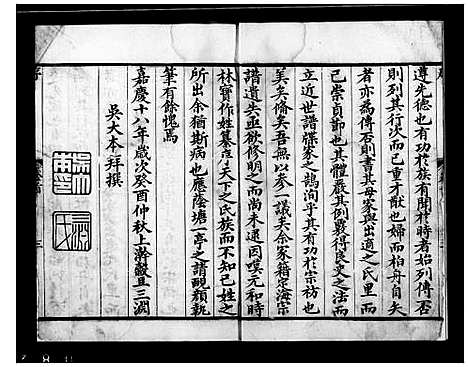 遵先德也有功於族有聞於時者始列傳否
則列其行次而已重才猷也婦而柏舟自矢
者亦爲傳否則書其母家與出適之氏里而
已崇貞節也其體嚴其例覈得良史之法而
立近世譜牒家之鵠洵乎其有功於宗祊也
美矣脩矣吾無以參一議矣余家籍原海宗
譜遺失亟欲修明之而尚未逮因嘆元和時
林寶作姓纂志天下之氏族而不知己姓之
所出余猶斯病也應蔭塘一亭之請靦顏執
筆有餘愧焉
嘉慶十八年歲次癸酉仲秋上澣穀旦三泖
吳大本拜撰